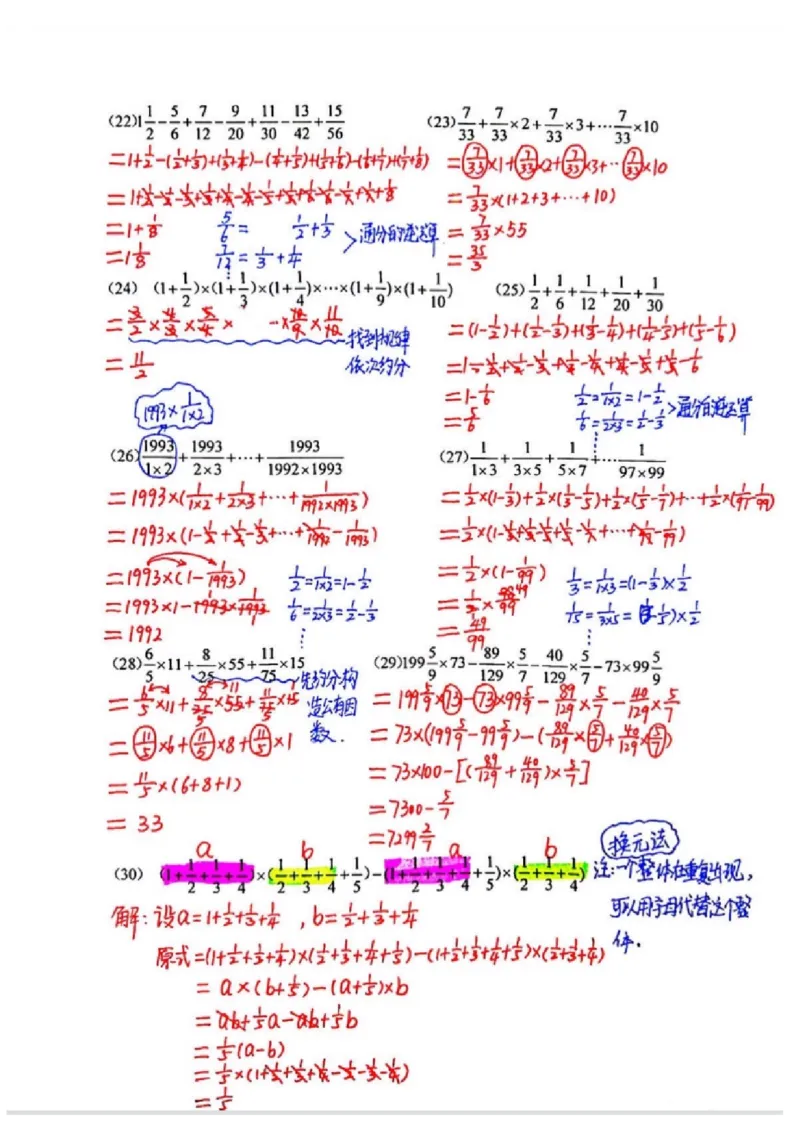 (22) 1 1/2 - 5/6 + 7/12 - 9/20 + 11/30 - 13/42 + 15/56
=1+1/2-(1/2+1/3)+(1/3+1/4)-(1/4+1/5)+(1/5+1/6)-(1/6+1/7)+(1/7+1/8)
=1+1/2-1/2-1/3+1/3+1/4-1/4-1/5+1/5+1/6-1/6-1/7+1/7+1/8
=1+1/8
=1 1/8
5/6 = 1/2+1/3
7/12 = 1/3+1/4
⋮
通分的逆运算
(23) 7/33 + 7/33 ×2+ 7/33 ×3+⋯ 7/33 ×10
= 7/33 ×1+ 7/33 ×2+ 7/33 ×3+⋯ 7/33 ×10
= 7/33 ×(1+2+3+⋯+10)
= 7/33 ×55
= 35/3
(24) (1+1/2)×(1+1/3)×(1+1/4)×⋯×(1+1/9)×(1+1/10)
= 3/2 × 4/3 × 5/4 × ⋯× 10/9 × 11/10
= 11/2
找到规律
依次约分
(25) 1/2 + 1/6 + 1/12 + 1/20 + 1/30
=(1-1/2)+(1/2-1/3)+(1/3-1/4)+(1/4-1/5)+(1/5-1/6)
=1-1/2+1/2-1/3+1/3-1/4+1/4-1/5+1/5-1/6
=1-1/6
=5/6
1/2=1/1×2=1-1/2
1/6=1/2×3=1/2-1/3
⋮
通分的逆运算
1993×1/1×2
(26) 1993/1×2 + 1993/2×3 +⋯+ 1993/1992×1993
=1993×(1/1×2+1/2×3+⋯+1/1992×1993)
=1993×(1-1/2+1/2-1/3+⋯+1/1992-1/1993)
=1993×(1-1/1993)
=1993×1-1993×1/1993
=1992
1/2=1/1×2=1-1/2
1/6=1/2×3=1/2-1/3
⋮
(27) 1/1×3 + 1/3×5 + 1/5×7 +⋯ 1/97×99
=1/2×(1-1/3)+1/2×(1/3-1/5)+1/2×(1/5-1/7)+⋯+1/2×(1/97-1/99)
=1/2×(1-1/3+1/3-1/5+1/5-1/7+⋯+1/97-1/99)
=1/2×(1-1/99)
=1/2×98/99
=49/99
1/3=1/1×3=(1-1/3)×1/2
1/15=1/3×5=(1/3-1/5)×1/2
⋮
(28) 6/5 ×11+ 8/25 ×55+ 11/75 ×15
= 6/5 ×11+ 8/25 ×55+ 11/75 ×15
= 11/5 ×6+ 11/5 ×8+ 11/5 ×1
= 11/5 ×(6+8+1)
= 33
先约分构
造公有因
数.
(29) 199 5/9 ×73- 89/129 × 5/7 - 40/129 × 5/7 -73×99 5/9
= 199 5/9 ×73-73×99 5/9 - 89/129 × 5/7 - 40/129 × 5/7
= 73×(199 5/9-99 5/9)-(89/129×5/7+40/129×5/7)
= 73×100-[(89/129+40/129)×5/7]
= 7300-5/7
= 7299 2/7
a b a b
(30) (1+1/2+1/3+1/4)×(1/2+1/3+1/4+1/5)-(1+1/2+1/3+1/4+1/5)×(1/2+1/3+1/4)
换元法
注:一个整体在重复出现,
可以用字母代替这个整
体.
解:设a=1+1/2+1/3+1/4 , b=1/2+1/3+1/4
原式=(1+1/2+1/3+1/4)×(1/2+1/3+1/4+1/5)-(1+1/2+1/3+1/4+1/5)×(1/2+1/3+1/4)
= a×(b+1/5)-(a+1/5)×b
= ab+1/5a-ab+1/5b
= 1/5(a-b)
= 1/5×(1+1/2+1/3+1/4-1/2-1/3-1/4)
= 1/5